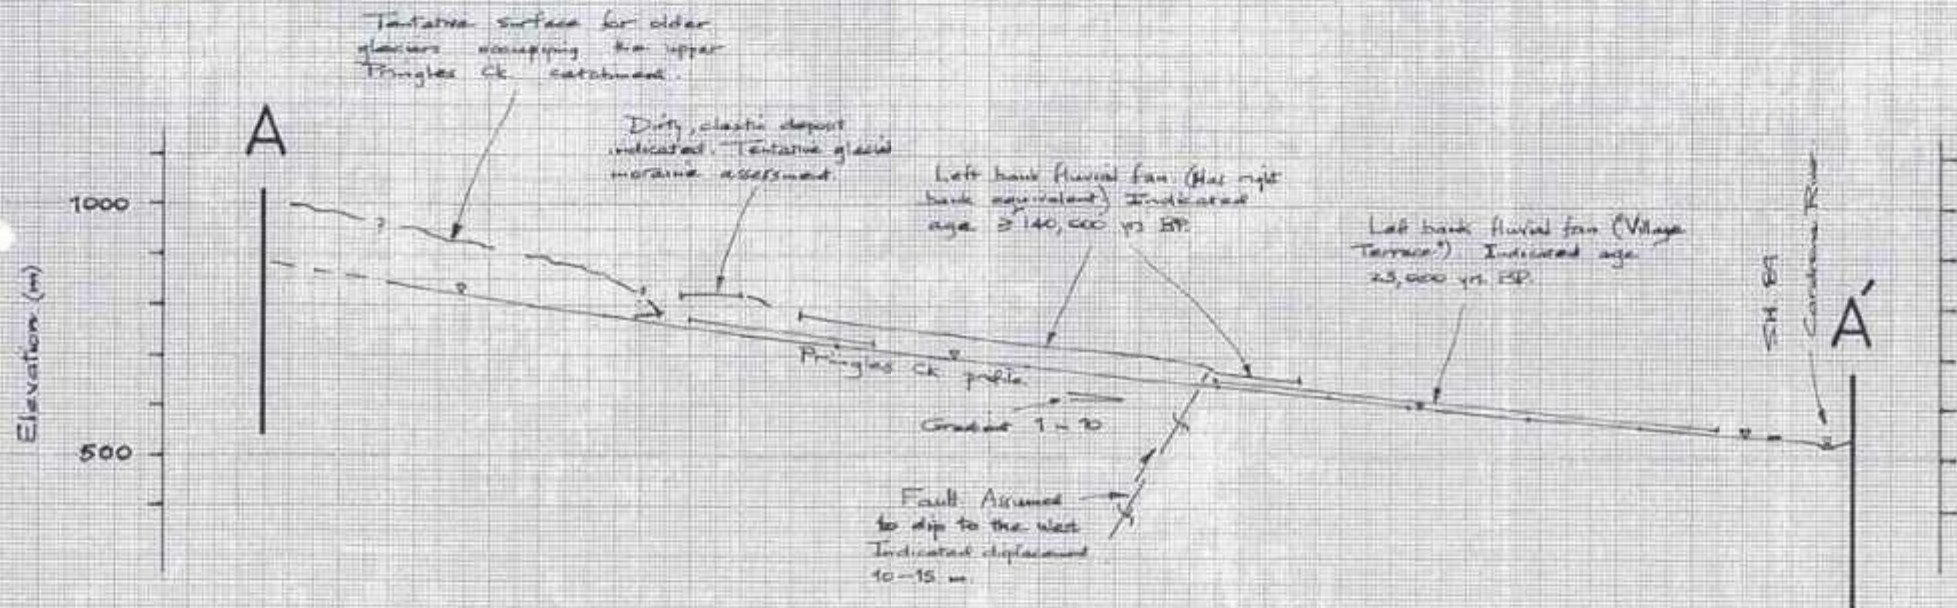 Tentative surface for older
glaciers occupying the upper
Pringles Ck catchment.
Dirty, clastic deposit
indicated. Tentative glacial
moraine assessment.
A
Left bank fluvial fan (Has right
bank equivalent) Indicated
age ≥ 140,000 yrs BP.
Left bank fluvial fan ("Village
Terrace") Indicated age
23,000 yrs. BP.
SH 89
River
A'
Elevation (m)
1000
500
?
Pringles Ck profile
Gradient 1 - 10
Fault Assumed
to dip to the west
Indicated diplacement
10-15 m.